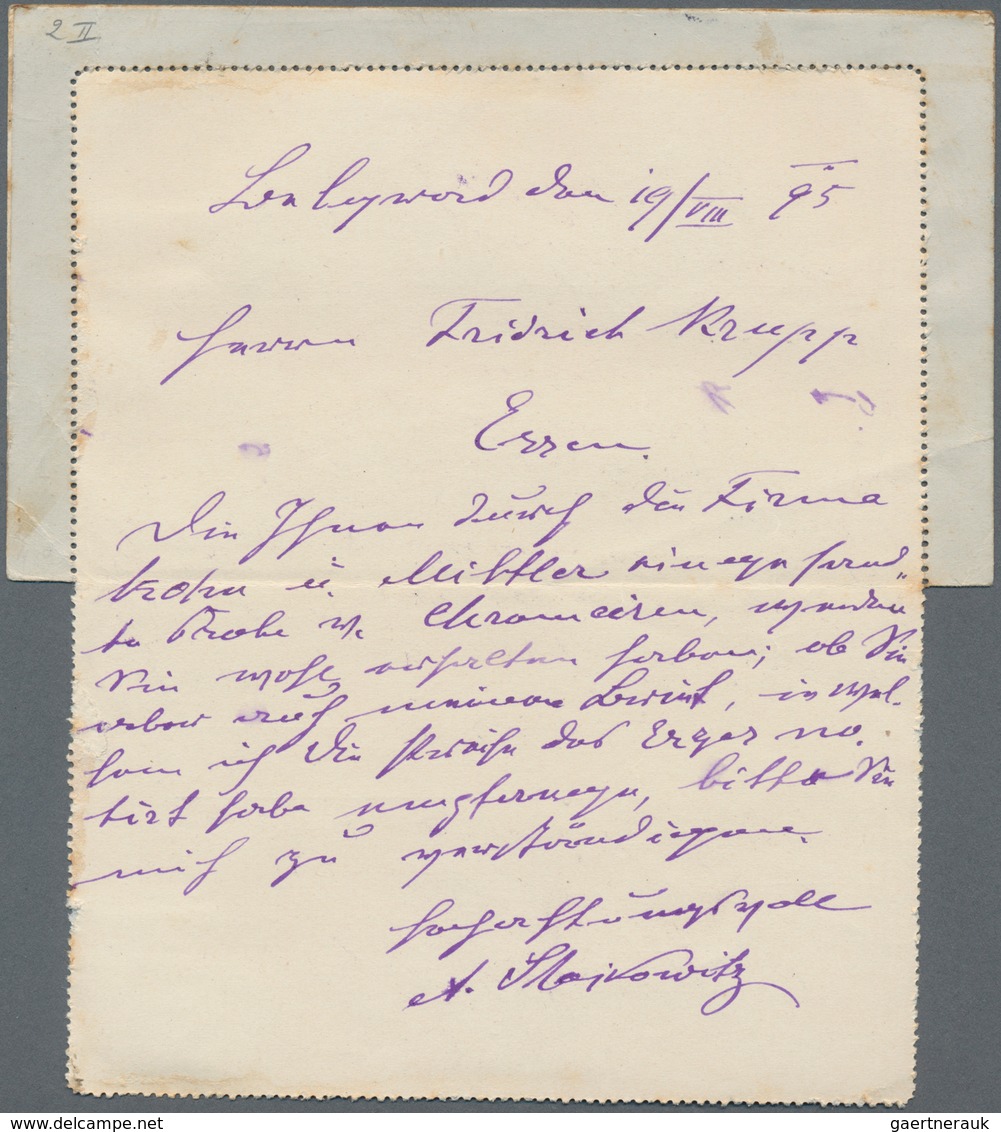 2 II
den 19/VIII 95
Herrn Fridrich Krupp
Essen.
Die Ihnen durch die Firma
u. Mittler eingesand„
te Probe v. Chromeisen, werden
Sie wohl erhalten haben; ob Sie
aber auch meinen Brief, in wel-
chem ich die Preise des Erzes no.
tirt habe empfangen, bitte Sie
mich zu verständigen.
Hochachtungsvoll
A.
gaertnerauk